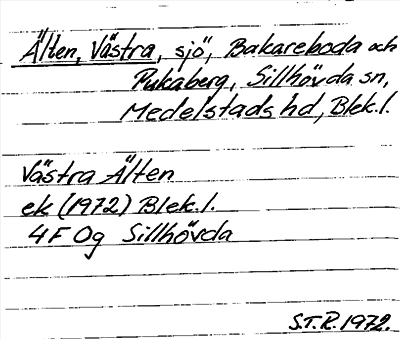 Älten, Västra, sjö, Bakareboda och
Pukaberg, Sillhövda sn,
Medelstads hd, Blek. l.
Västra Älten
ek (1972) Blek. l.
4F 0g Sillhövda
S.T.R. 1972.